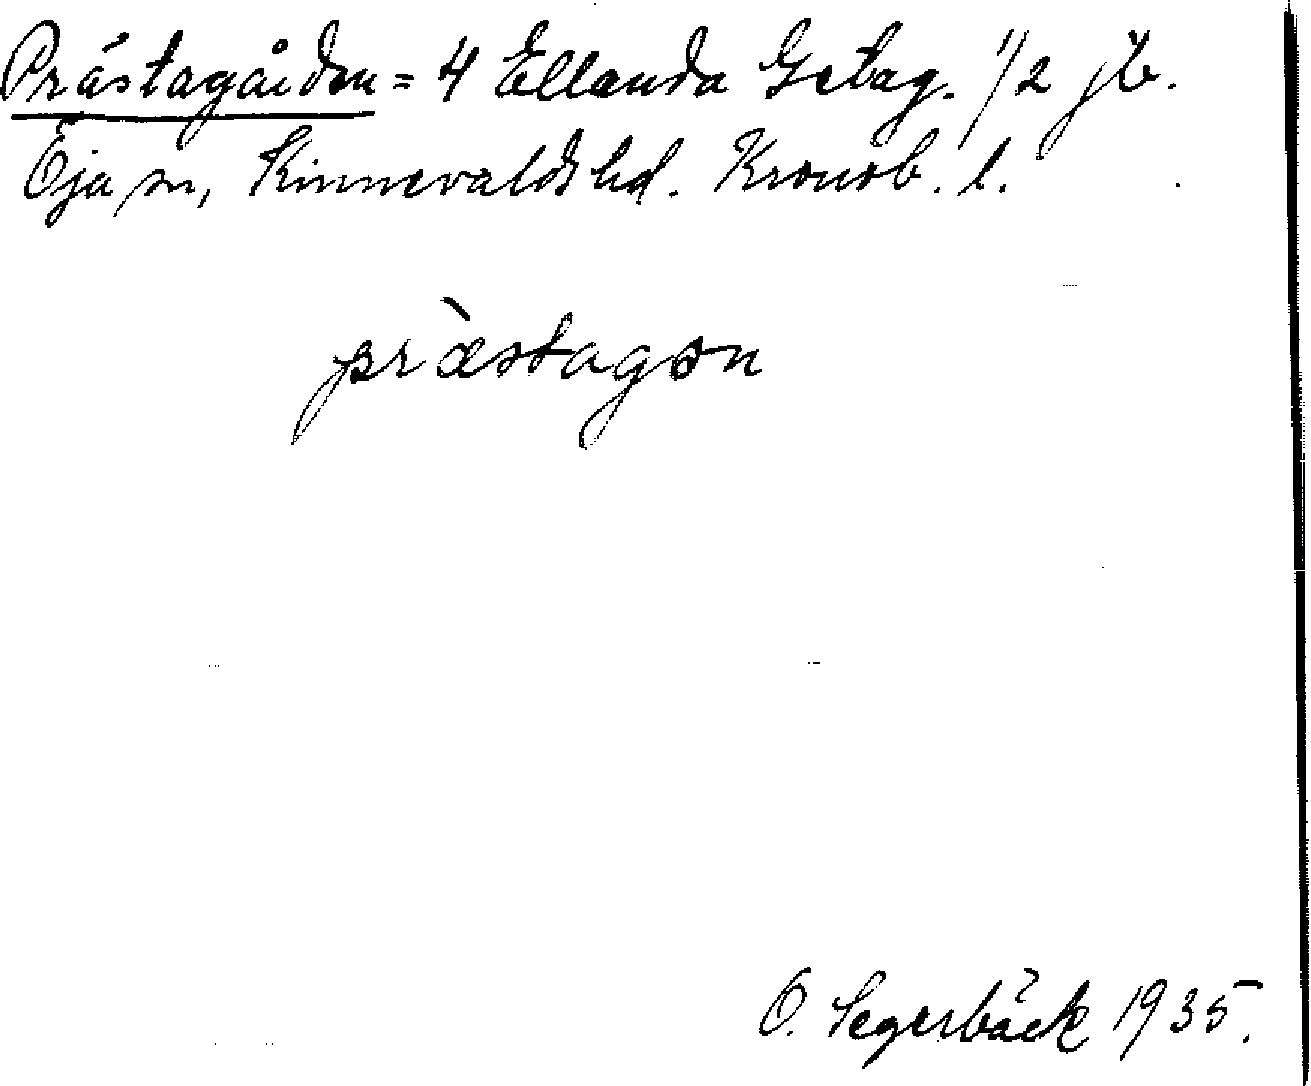 Prästagården = 4 Ellanda Getag. 1/2 jb.
Öja sn, Kinnevalds hd. Kronob. l.
præ̀stagọn
O. Segerbäck 1935.